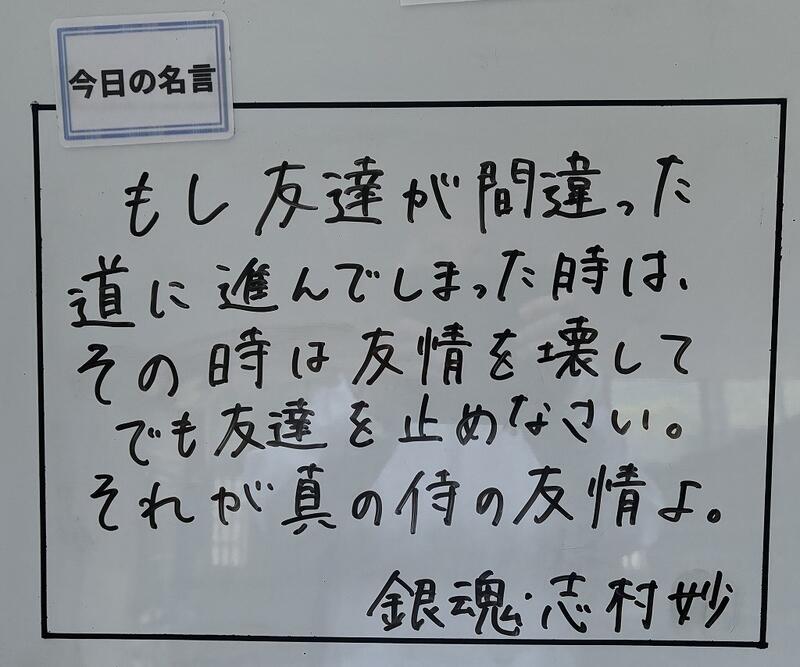 今日の名言
もし友達が間違った
道に進んでしまった時は、
その時は友情を壊して
でも友達を止めなさい。
それが真の侍の友情よ。
銀魂・志村妙